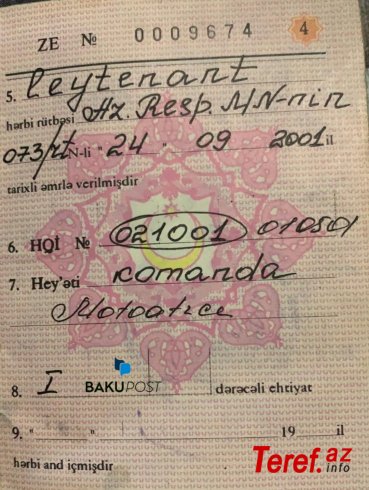 ZE № 0009674 4
5. leytenant
hərbi rütbəsi Az. Resp. MN-nin
073/ №-li " 24 " 09 2001 il
tarixli əmrlə verilmişdir
6. HQİ № 021001
7. Hey'əti komanda
8. I BAKUPOST dərəcəli ehtiyat
9. " " 19 il
hərbi and içmişdir
Teref.az
info